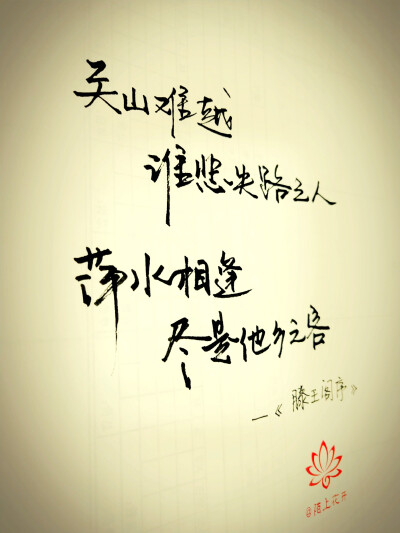 关山难越
谁悲失路之人
萍水相逢
尽是他乡之客
—《滕王阁序》
@陌上花开